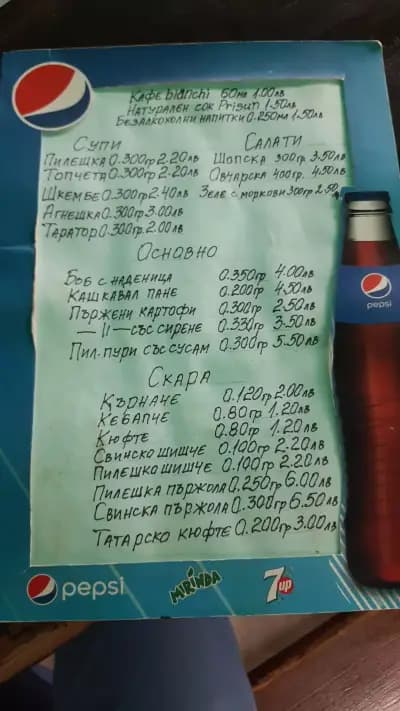 Кафе bianchi 60мл 1.00лв
Натурален сок Prisun 1.50лв
Безалкохолни напитки 0.250мл 1.50лв
Супи
Пилешка 0.300гр 2.20лв
Топчета 0.300гр 2.20лв
Шкембе 0.300гр 2.40лв
Агнешка 0.300гр 3.00лв
Таратор 0.300гр 2.00лв
Салати
Шопска 300гр 3.50лв
Овчарска 400гр. 4.50лв
Зеле с моркови 300гр 2.50лв
Основно
Боб с наденица 0.350гр 4.00лв
Кашкавал пане 0.200гр 4.50лв
Пържени картофи 0.300гр 2.50лв
—11— със сирене 0.330гр 3.50лв
Пил.пури със сусам 0.300гр 5.50лв
Скара
Кърначе 0.120гр 2.00лв
Кебапче 0.80гр 1.20лв
Кюфте 0.80гр 1.20лв
Свинско шишче 0.100гр 2.20лв
Пилешко шишче 0.100гр 2.20лв
Пилешка пържола 0.250гр 6.00лв
Свинска пържола 0.300гр 6.50лв
Татарско кюфте 0.200гр 3.00лв
pepsi
pepsi
MIRINDA
7up